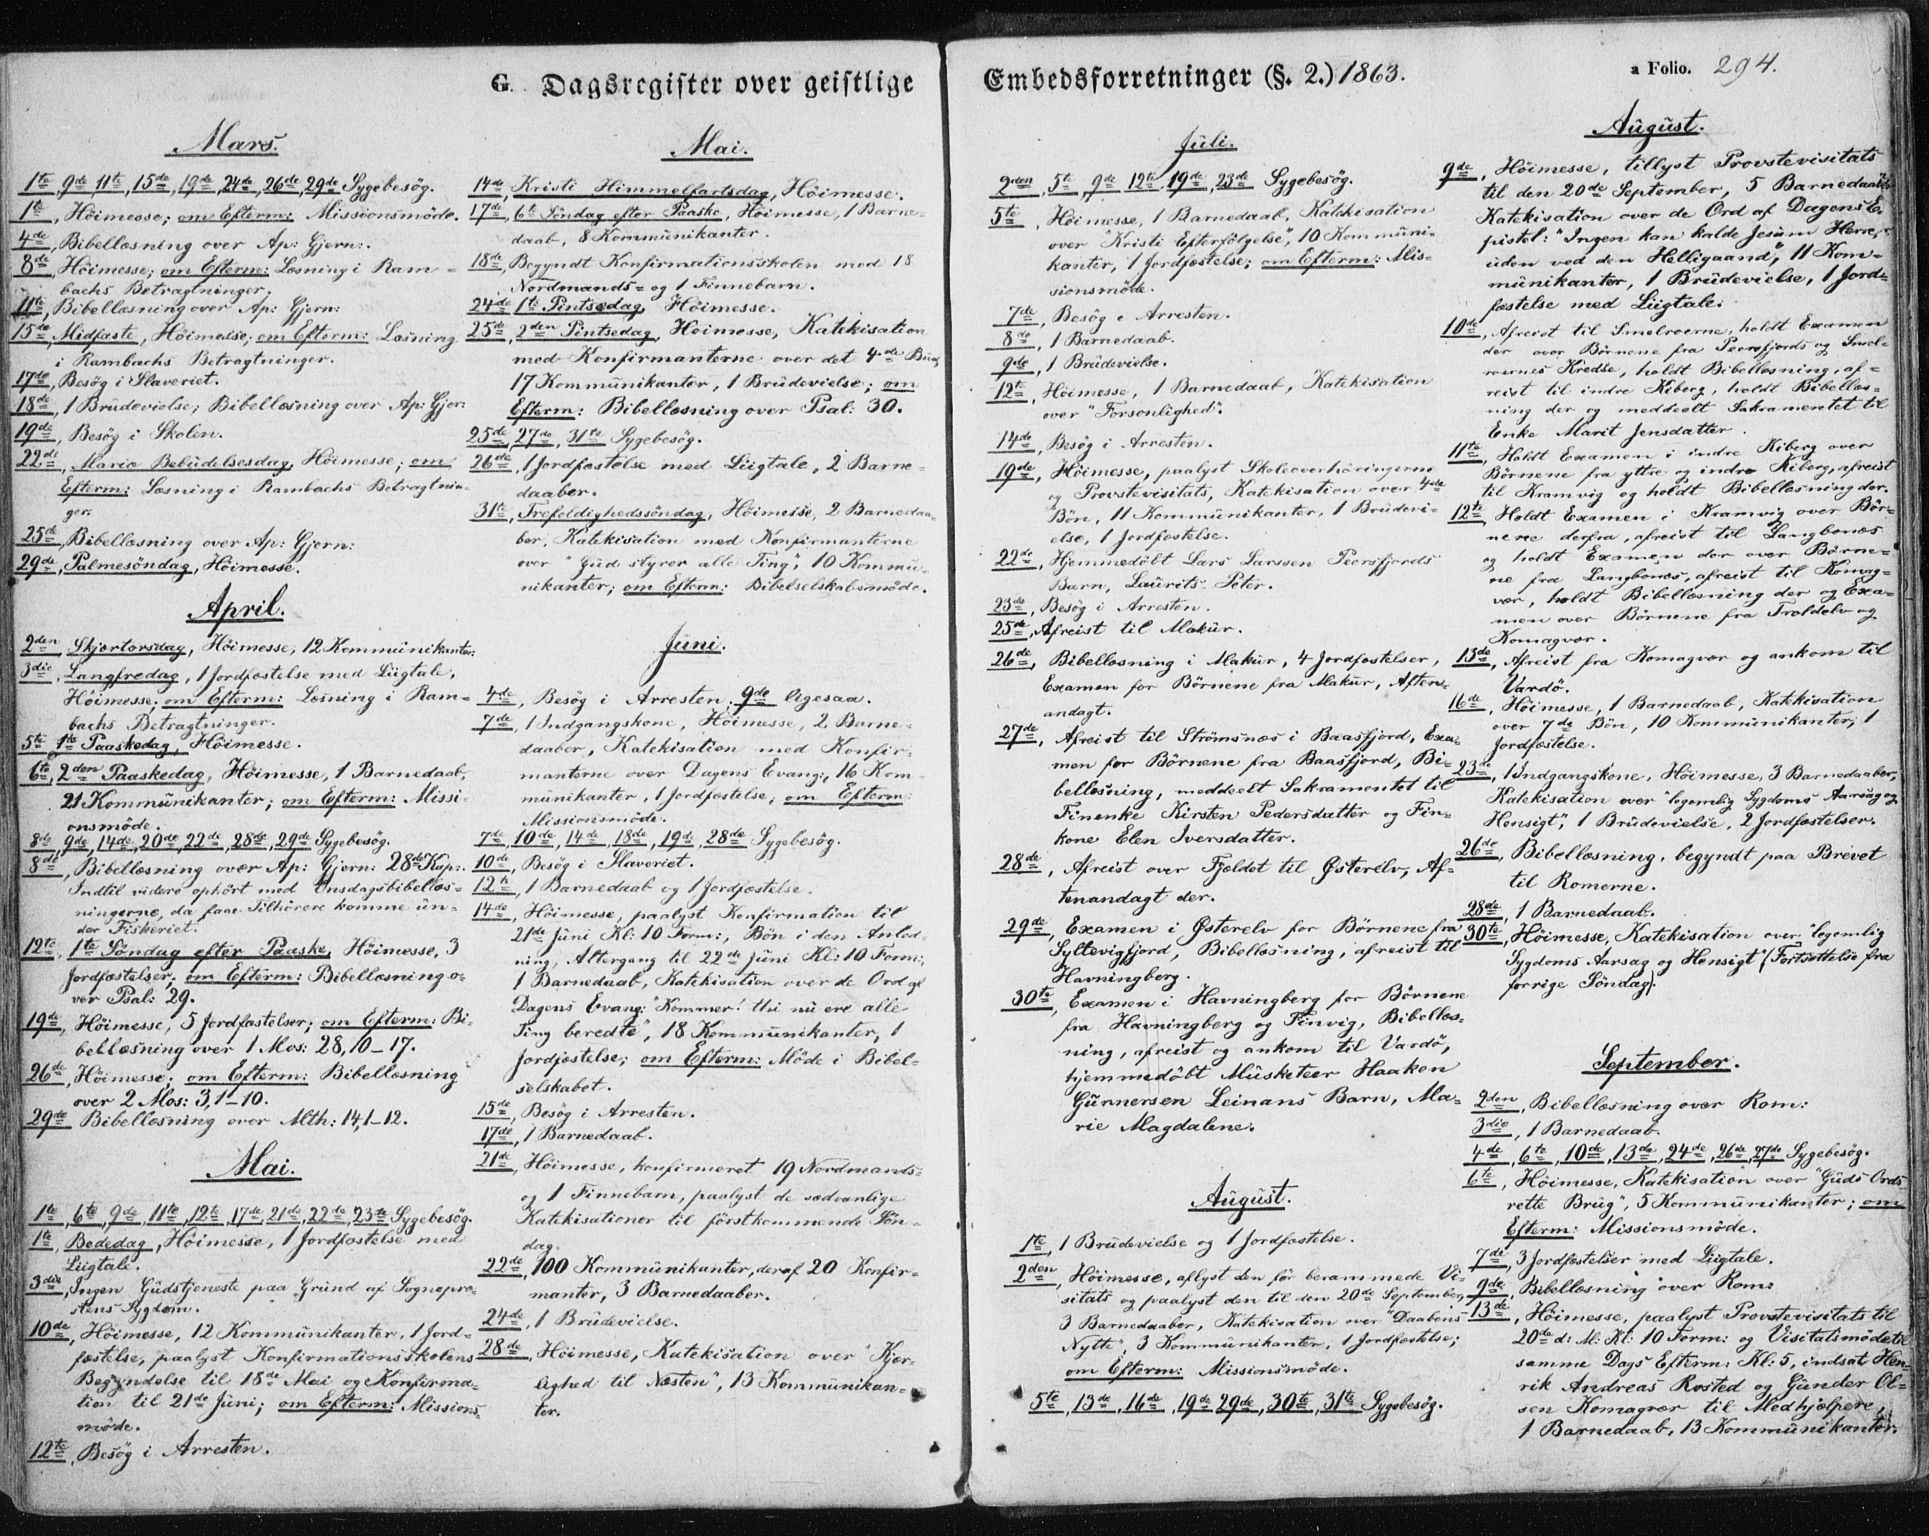 G. Dagsregister over geistlige
Mars.
1te, 9de 11te, 15de, 19de, 24de, 26de, 29de Sygebesög.
1te, Höimesse; om Efterm: Missionsmöde.
4de, Bibellæsning over Ap: Gjern:.
8de, Höimesse; om Efterm: Læsning i Ram-
bachs Betragtninger.
11te, Bibellæsning over Ap: Gjern:
15de, Midfaste, Höimesse; om Efterm: Læsning
i Rambachs Betragtninger.
17de, Besög i Slaveriet.
18de, 1 Brüdevielse; Bibellæsning over Ap: Gjer:
19de, Besög i Skolen.
22de, Mariæ Bebüdelsesdag, Höimesse; om
Efterm: Læsning i Rambachs Betragtnin-
ger.
25de, Bibellæsning over Ap: Gjern:
29de, Palmesöndag, Höimesse.
April.
2den, Skjærtorsdag, Höimesse, 12 Kommünikanter.
3die, Langfredag, 1 Jordfæstelse med Liigtale,
Höimesse; om Efterm: Læsning i Ram-
bachs Betragtninger.
5te, 1te Paaskedag, Höimesse.
6te, 2den Paaskedag, Höimesse, 1 Barnedaab,
21 Kommünikanter; om Efterm: Missi-
onsmöde.
8de 9de, 14de, 20de, 22de, 28de, 29de Sygebesög.
8de, Bibellæsning over Ap: Gjern: 28de Kap:.
Indtil videre ophört med Onsdagsbibellæs-
ningerne, da faae Tilhörere komme ün-
der Fiskeriet.
12te, 1te Söndag efter Paaske, Höimesse, 3
Jordfæstelser, om Efterm: Bibellæsning o-
ver Psal: 29.
19de, Höimesse, 5 Jordfæstelser; om Efterm: Bi-
bellæsning over 1 Mos: 28, 10-17.
26de, Höimesse; om Efterm: Bibellæsning
over 2 Mos: 3, 1-10.
29de Bibellæsning over Mth: 14, 1-12.
Mai.
1te, 6te, 9de, 11te, 12te, 17de, 21de, 22de, 23de Sygebesög.
1te, Bededag, Höimesse, 1 Jordfæstelse med
Liigtale.
3die, Ingen Güdstjeneste paa Gründ af Sognepræ-
stens Sygdom.
10de, Höimesse, 12 Kommünikanter, 1 Jord-
fæstelse, paalyst Konfirmationsskolens
Begyndelse til 18de Mai og Konfirma-
tion til 21de Jüni; om Efterm: Missions-
möde.
12te, Besög i Arresten.
Mai.
14de, Kristi Himmelfartsdag, Höimesse.
17de, 6te Söndag efter Paaske, Höimesse, 1 Barne-
daab, 8 Kommünikanter.
18de, Begyndt Konfirmationsskolen med 18
Nordmands- og 1 Finnebarn.
24de 1te Pintsedag, Höimesse.
25de, 2den Pintsedag, Höimesse, Katekisation
med Konfirmanterne over det 4de Bud,
17 Kommünikanter, 1 Brüdevielse; om
Efterm: Bibellæsning over Psal: 30.
25de, 27de, 31te Sygebesög.
26de, 1 Jordfæstelse med Liigtale, 2 Barne-
daaber.
31te, Trefoldighedssöndag, Höimesse, 2 Barnedaa-
ber, Katekisation med Konfirmanterne
over "Güd styrer alle Ting", 10 Kommü-
nikanter; om Efterm: Bibelselskabsmöde.
Jüni.
4de, Besög i Arresten, 9de ligesaa.
7de, 1 Indgangskone, Höimesse, 2 Barne-
daaber, Katekisation med Konfir-
manterne over Dagens Evang:, 16 Kom-
münikanter, 1 Jordfæstelse, om Efterm:
Missionsmöde.
7de, 10de, 14de, 18de, 19de, 28de Sygebesög.
10de, Besög i Slaveriet.
12te, 1 Barnedaab og 1 Jordfæstelse.
14de, Höimesse, paalyst Konfirmation til
21de Jüni Kl: 10 Form:, Bön i den Anled-
ning, Altergang til 22de Jüni Kl: 10 Form:,
1 Barnedaab, Katekisation over de Ord af
Dagens Evang: "Kommer! thi nü ere alle
Ting beredte", 18 Kommünikanter, 1
Jordfæstelse; om Efterm: Möde i Bibel-
selskabet.
15de, Besög i Arresten.
17de, 1 Barnedaab.
21de, Höimesse, konfirmeret 19 Nordmands-
og 1 Finnebarn, paalyst de sædvanlige
Katekisationer til förstkommende Sön-
dag.
22de, 100 Kommünikanter, deraf 20 Konfir-
manter, 3 Barnedaaber.
24de, 1 Brüdevielse.
28de, Höimesse, Katekisation over "Kjær-
lighed til Næsten", 13 Kommünikan-
ter.
Embedsforretninger (§. 2.) 1863.
a Folio. 294.
Jüli.
2den, 5te, 9de, 12te, 19de, 23de Sygebesög.
5te, Höimesse, 1 Barnedaab, Katekisation
over "Kristi Efterfölgelse", 10 Kommüni-
kanter, 1 Jordfæstelse; om Efterm: Mis-
sionsmöde.
7de, Besög i Arresten.
8de, 1 Barnedaab.
9de, 1 Brüdevielse.
12te, Höimesse, 1 Barnedaab, Katekisation
over "Forsonlighed".
14de, Besög i Arresten.
19de, Höimesse, paalyst Skoleoverhöringerne
og Provstevisitats, Katekisation over 4de
Bön, 11 Kommünikanter, 1 Brüdevi-
else, 1 Jordfæstelse.
22de, Hjemmedöbt Lars Larssen Peersfjords
Barn, Laurits Peter.
23de, Besög i Arresten.
25de, Afreist til Makür.
26de, Bibellæsning i Makür, 4 Jordfæstelser,
Examen for Börnene fra Makür, Aften-
andagt.
27de, Afreist til Strömsnæs i Baasfjord, Exa-
men for Börnene fra Baasfjord, Bi-
bellæsning, meddeelt Sakramentet til
Finenke Kirsten Pedersdatter og Fin-
kone Elen Iversdatter.
28de, Afreist over Fjeldet til Østerelv, Af-
tenandagt der.
29de, Examen i Østerelv for Börnene fra
Syltevigfjord, Bibellæsning, afreist til
Havningberg.
30te, Examen i Havningberg for Börnene
fra Havningberg og Finvig, Bibellæs-
ning, afreist og ankom til Vardö,
hjemmedöbt Müsketeer Haakon
Günnersen Leinans Barn, Ma-
rie Magdalene.
August.
1te, 1 Brüdevielse og 1 Jordfæstelse.
2den, Höimesse, aflyst den för berammede Vi-
sitats og paalyst den til den 20de September,
3 Barnedaaber, Katekisation over "Daabens
Nytte", 3 Kommünikanter, 1 Jordfæstelse;
om Efterm: Missionsmöde.
5te, 13de, 16de, 19de 29de, 30te, 31te Sygebesög.
August.
9de, Höimesse, tillyst Provstevisitats
til den 20de September, 5 Barnedaab,
Katekisation over de Ord af Dagens E-
pistel: "Ingen kan kalde Jesüm Herre,
uden ved den Helligaand", 11 Kom-
münikanter, 1 Brüdevielse, 1 Jord-
fæstelse med Liigtale.
10de, Afreist til Smelroerne, holdt Examen
der over Börnene fra Peersfjords og Smel-
roernes Kredse, holdt Bibellæsning, af-
reist til indre Kiberg, holdt Bibellæs-
ning der og meddeelt Sakramentet til
Enke Marit Jensdatter.
11te, Holdt Examen i indre Kiberg over
Börnene fra yttre og indre Kiberg, afreist
til Kramvig og holdt Bibellæsning der.
12te, Holdt Examen i Kramvig over Bör-
nene derfra, afreist til Langbünæs
og holdt Examen der over Börne-
ne fra Langbünæs, afreist til Komag-
vær, holdt Bibellæsning der og Exa-
men over Börnene fra Troldelv og
Komagvær.
13de, Afreist fra Komagvær og ankom til
Vardö.
16de, Höimesse, 1 Barnedaab, Katekisation
over 7de Bön, 10 Kommünikanter, 1
Jordfæstelse.
23de, 1 Indgangskone, Höimesse, 3 Barnedaaber,
Katekisation over "legemlig Sygdoms Aarsag og
Hensigt", 1 Brüdevielse, 2 Jordfæstelser.
26de, Bibellæsning, begyndt paa Brevet
til Romerne.
28de, 1 Barnedaab.
30te, Höimesse, Katekisation over "legemlig
Sygdoms Aarsag og Hensigt" (Fortsættelse fra
forrige Söndag).
September.
2den, Bibellæsning over Rom:
3die, 1 Barnedaab.
4de, 6te, 10de, 13de, 24de, 26de, 27de Sygebesög.
6te, Höimesse, Katekisation over "Güds Ords
rette Brug", 5 Kommünikanter; om
Efterm: Missionsmöde.
7de, 3 Jordfæstelser med Liigtale.
9de, Bibellæsning over Rom:
13de, Höimesse, paalyst Provstevisitats til
20de d: M: Kl: 10 Form: og Visitatsmöde til
samme Dags Efterm: Kl: 5, indsat Hen-
rik Andreas Rosted og Günder Ol-
sen Komagvær til Medhjælpere,
1 Barnedaab, 13 Kommünikanter.